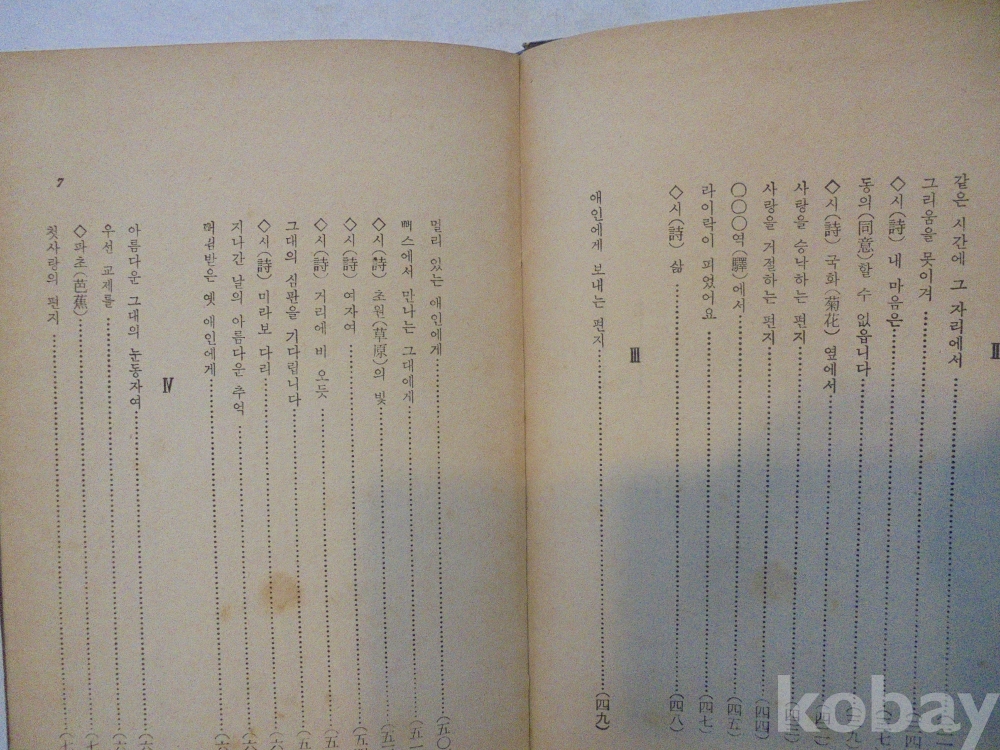 Ⅱ
같은 시간에 그 자리에서
그리움을 못이겨
◇시(詩) 내 마음은
동의(同意)할 수 없읍니다
◇시(詩) 국화(菊花) 옆에서
사랑을 승낙하는 편지
사랑을 거절하는 편지
〇〇〇역(驛)에서 (四五)
라이락이 피었어요 (四七)
◇시(詩) 삶 (四八)
Ⅲ
애인에게 보내는 편지 (四九)
멀리 있는 애인에게 (五〇)
뻐스에서 만나는 그대에게
◇시(詩) 초원(草原)의 빛
◇시(詩) 여자여
◇시(詩) 거리에 비 오듯
그대의 심판을 기다립니다
◇시(詩) 미라보 다리
지나간 날의 아름다운 추억
버림받은 옛 애인에게
Ⅳ
아름다운 그대의 눈동자여
우선 교제를
◇파초(芭蕉)
첫사랑의 편지
7
kobay